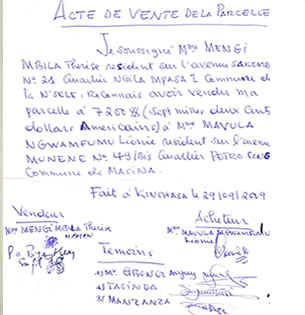 ACTE DE VENTE DE LA PARCELLE
Je soussigné Mme MENGI
MBILA Thérèse resident sur l'avenue SAKOMBI
No 21 Quartier NGILA MPASA I Commune de
la N'SELE, reconnais avoir vendu ma
parcelle à 7200$ (Sept milles deux Cents
dollars Americains) à Mme MAVULA
NGWAMFUMU Léonie resident sur l'avenue
MUNENE No 49/Bis Quartier PETRO CONGO
Commune de MASINA.
Fait à KINSHASA le 29/09/2009
Vendeur
Acheteur
Mme MENGI MBILA Thérèse
Mme MAVULA NGWAMFUMU
Léonie
P.o
Temoins
1) Mr GBONGI
2) TASINDA
3) MANZANZA